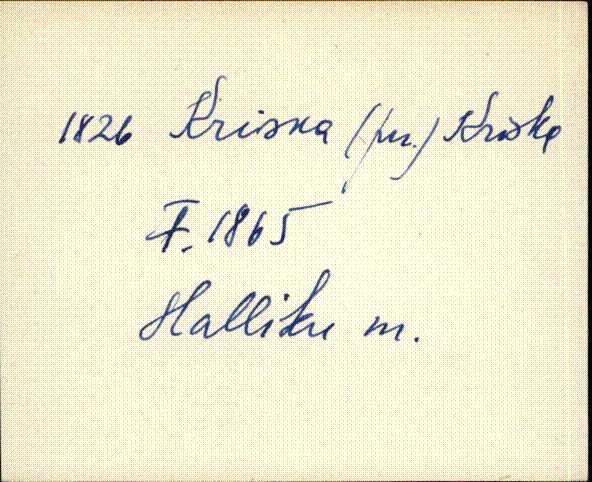 1826 Kriska (pr.) Kriska
F. 1865
Halliku m.